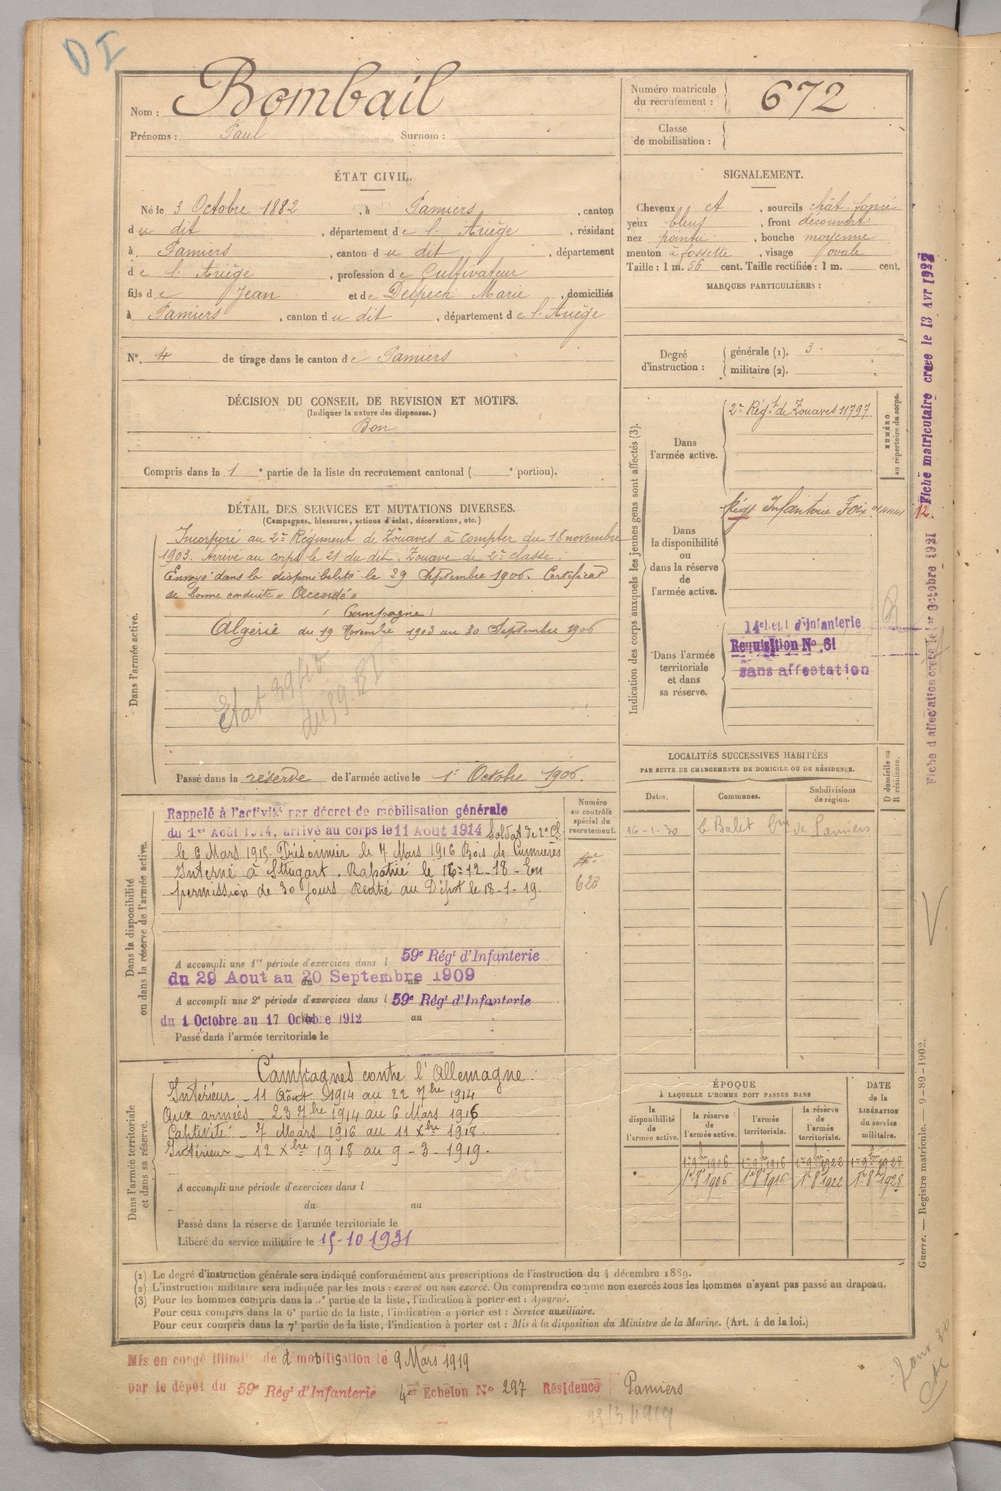 DI
Nom : Bombail
Prénoms : Paul Surnom :
Numéro matricule
du recrutement : 672
Classe
de mobilisation :
ÉTAT CIVIL.
Né le 3 Octobre 1882, à Pamiers, canton
du dit, département de l'Ariège, résidant
à Pamiers, canton du dit, département
de l'Ariège, profession de Cultivateur
fils de Jean et de Delpech Marie, domiciliés
à Pamiers, canton du dit, département de l'Ariège
N° 4 de tirage dans le canton de Pamiers
SIGNALEMENT.
Cheveux ct, sourcils chât. foncé
yeux bleus, front découvert
nez pointu, bouche moyenne
menton à fossette, visage ovale
Taille : 1 m. 56 cent. Taille rectifiée : 1 m. cent.
MARQUES PARTICULIÈRES :
Degré
d'instruction :
générale (1). 3
militaire (2).
DÉCISION DU CONSEIL DE REVISION ET MOTIFS.
(Indiquer la nature des dispenses.)
Bon
Compris dans la 1e partie de la liste du recrutement cantonal ( e portion).
DÉTAIL DES SERVICES ET MUTATIONS DIVERSES.
(Campagnes, blessures, actions d'éclat, décorations, etc.)
Dans l'armée active.
Incorporé au 2e Régiment de Zouaves à compter du 18 novembre
1903. Arrivé au corps le 21 du dit. Zouave de 2e classe.
Envoyé dans la disponibilité le 29 Septembre 1906. Certificat
de bonne conduite "Accordé"
Campagne
Algérie du 19 Novembre 1903 au 30 Septembre 1906
Passé dans la réserve de l'armée active le 1er Octobre 1906.
Indication des corps auxquels les jeunes gens sont affectés (3).
Dans
l'armée active.
2e Régt de Zouaves 11797
NUMÉRO
au répertoire du corps.
Dans
la disponibilité
ou
dans la réserve
de
l'armée active.
Régt Infanterie Foix
Dans l'armée
territoriale
et dans
sa réserve.
Requisition No 61
sans affectation
LOCALITÉS SUCCESSIVES HABITÉES
PAR SUITE DE CHANGEMENTS DE DOMICILE OU DE RÉSIDENCE.
Dates. Communes. Subdivisions
de région.
D domicile ou
R résidence.
16-1-30
de Pamiers
Dans la disponibilité
ou dans la réserve de l'armée active.
Numéro
au contrôle
spécial du
recrutement.
628
Rappelé à l'activité par décret de mobilisation générale
du 1er Août 1914, arrivé au corps le 11 Août 1914 Soldat de 2e Cl.
le 6 Mars 1915. Prisonnier le 7 Mars 1916 Bois de Cumières
Interné à Sttugart. Rapatrié le 16-12-18 - En
permission de 30 jours. Rentré au Dépôt le 18-1-19.
A accompli une 1re période d'exercices dans l 59e Régt d'Infanterie
du 29 Aout au 20 Septembre 1909
A accompli une 2e période d'exercices dans l 59e Régt d'Infanterie
du 1 Octobre au 17 Octobre 1912 au
Passé dans l'armée territoriale le
Dans l'armée territoriale
et dans sa réserve.
Campagnes contre l'Allemagne.
Intérieur - 11 Août 1914 au 22 7bre 1914
Aux armées - 23 7bre 1914 au 6 Mars 1916
Captivité - 7 Mars 1916 au 11 Xbre 1918.
Intérieur - 12 Xbre 1918 au 9-3-1919.
A accompli une période d'exercices dans l
du au
Passé dans la réserve de l'armée territoriale le
Libéré du service militaire le 15-10-1931
ÉPOQUE
À LAQUELLE L'HOMME DOIT PASSER DANS
la
disponibilité
de
l'armée active.
la réserve
de
l'armée active.
l'armée
territoriale.
la réserve
de
l'armée
territoriale.
DATE
de la
LIBÉRATION
du service
militaire.
1er 8bre 1906 1er 8bre 1916 1er 8bre 1922 1er 8bre 1928
(1) Le degré d'instruction générale sera indiqué conformément aux prescriptions de l'instruction du 4 décembre 1889.
(2) L'instruction militaire sera indiquée par les mots : exercé ou non exercé. On comprendra comme non exercés tous les hommes n'ayant pas passé au drapeau.
(3) Pour les hommes compris dans la 5e partie de la liste, l'indication à porter est : Ajourné.
Pour ceux compris dans la 6e partie de la liste, l'indication à porter est : Service auxiliaire.
Pour ceux compris dans la 7e partie de la liste, l'indication à porter est : Mis à la disposition du Ministre de la Marine. (Art. 4 de la loi.)
Mis en congé illimité de démobilisation le 9 Mars 1919
par le dépôt du 59e Régt d'Infanterie 4e Echelon No 297 Résidence Pamiers
Fiche matriculaire créée le 13 Avr 1922
Fiche d'affectation créée le 1er Octobre 1921
Guerre. — Registre matricule. — 9-89-1902.